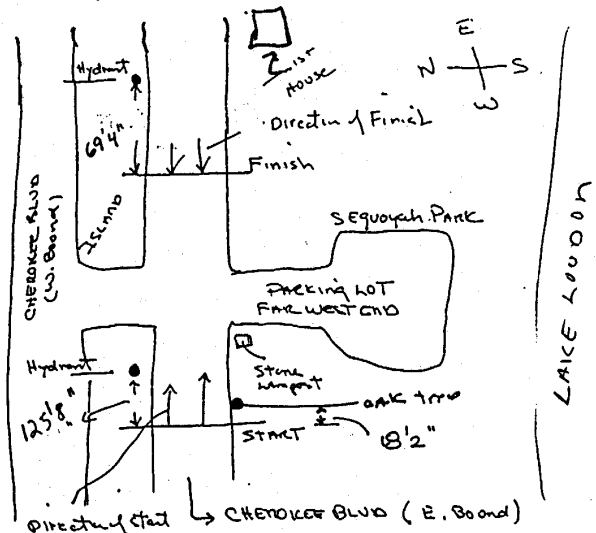 Hydrant
1st
HOUSE
E
N
S
W
69'4"
Direction of Finish
Finish
ISLAND
CHEROKEE BLVD
(W. Bound)
SEquoyah. PARK
PARKING LOT
FAR WEST END
LAKE LOUDON
Hydrant
Stone
OAK tree
125'8"
START
8'2"
Direction of start
CHEROKEE BLVD (E. Bound)